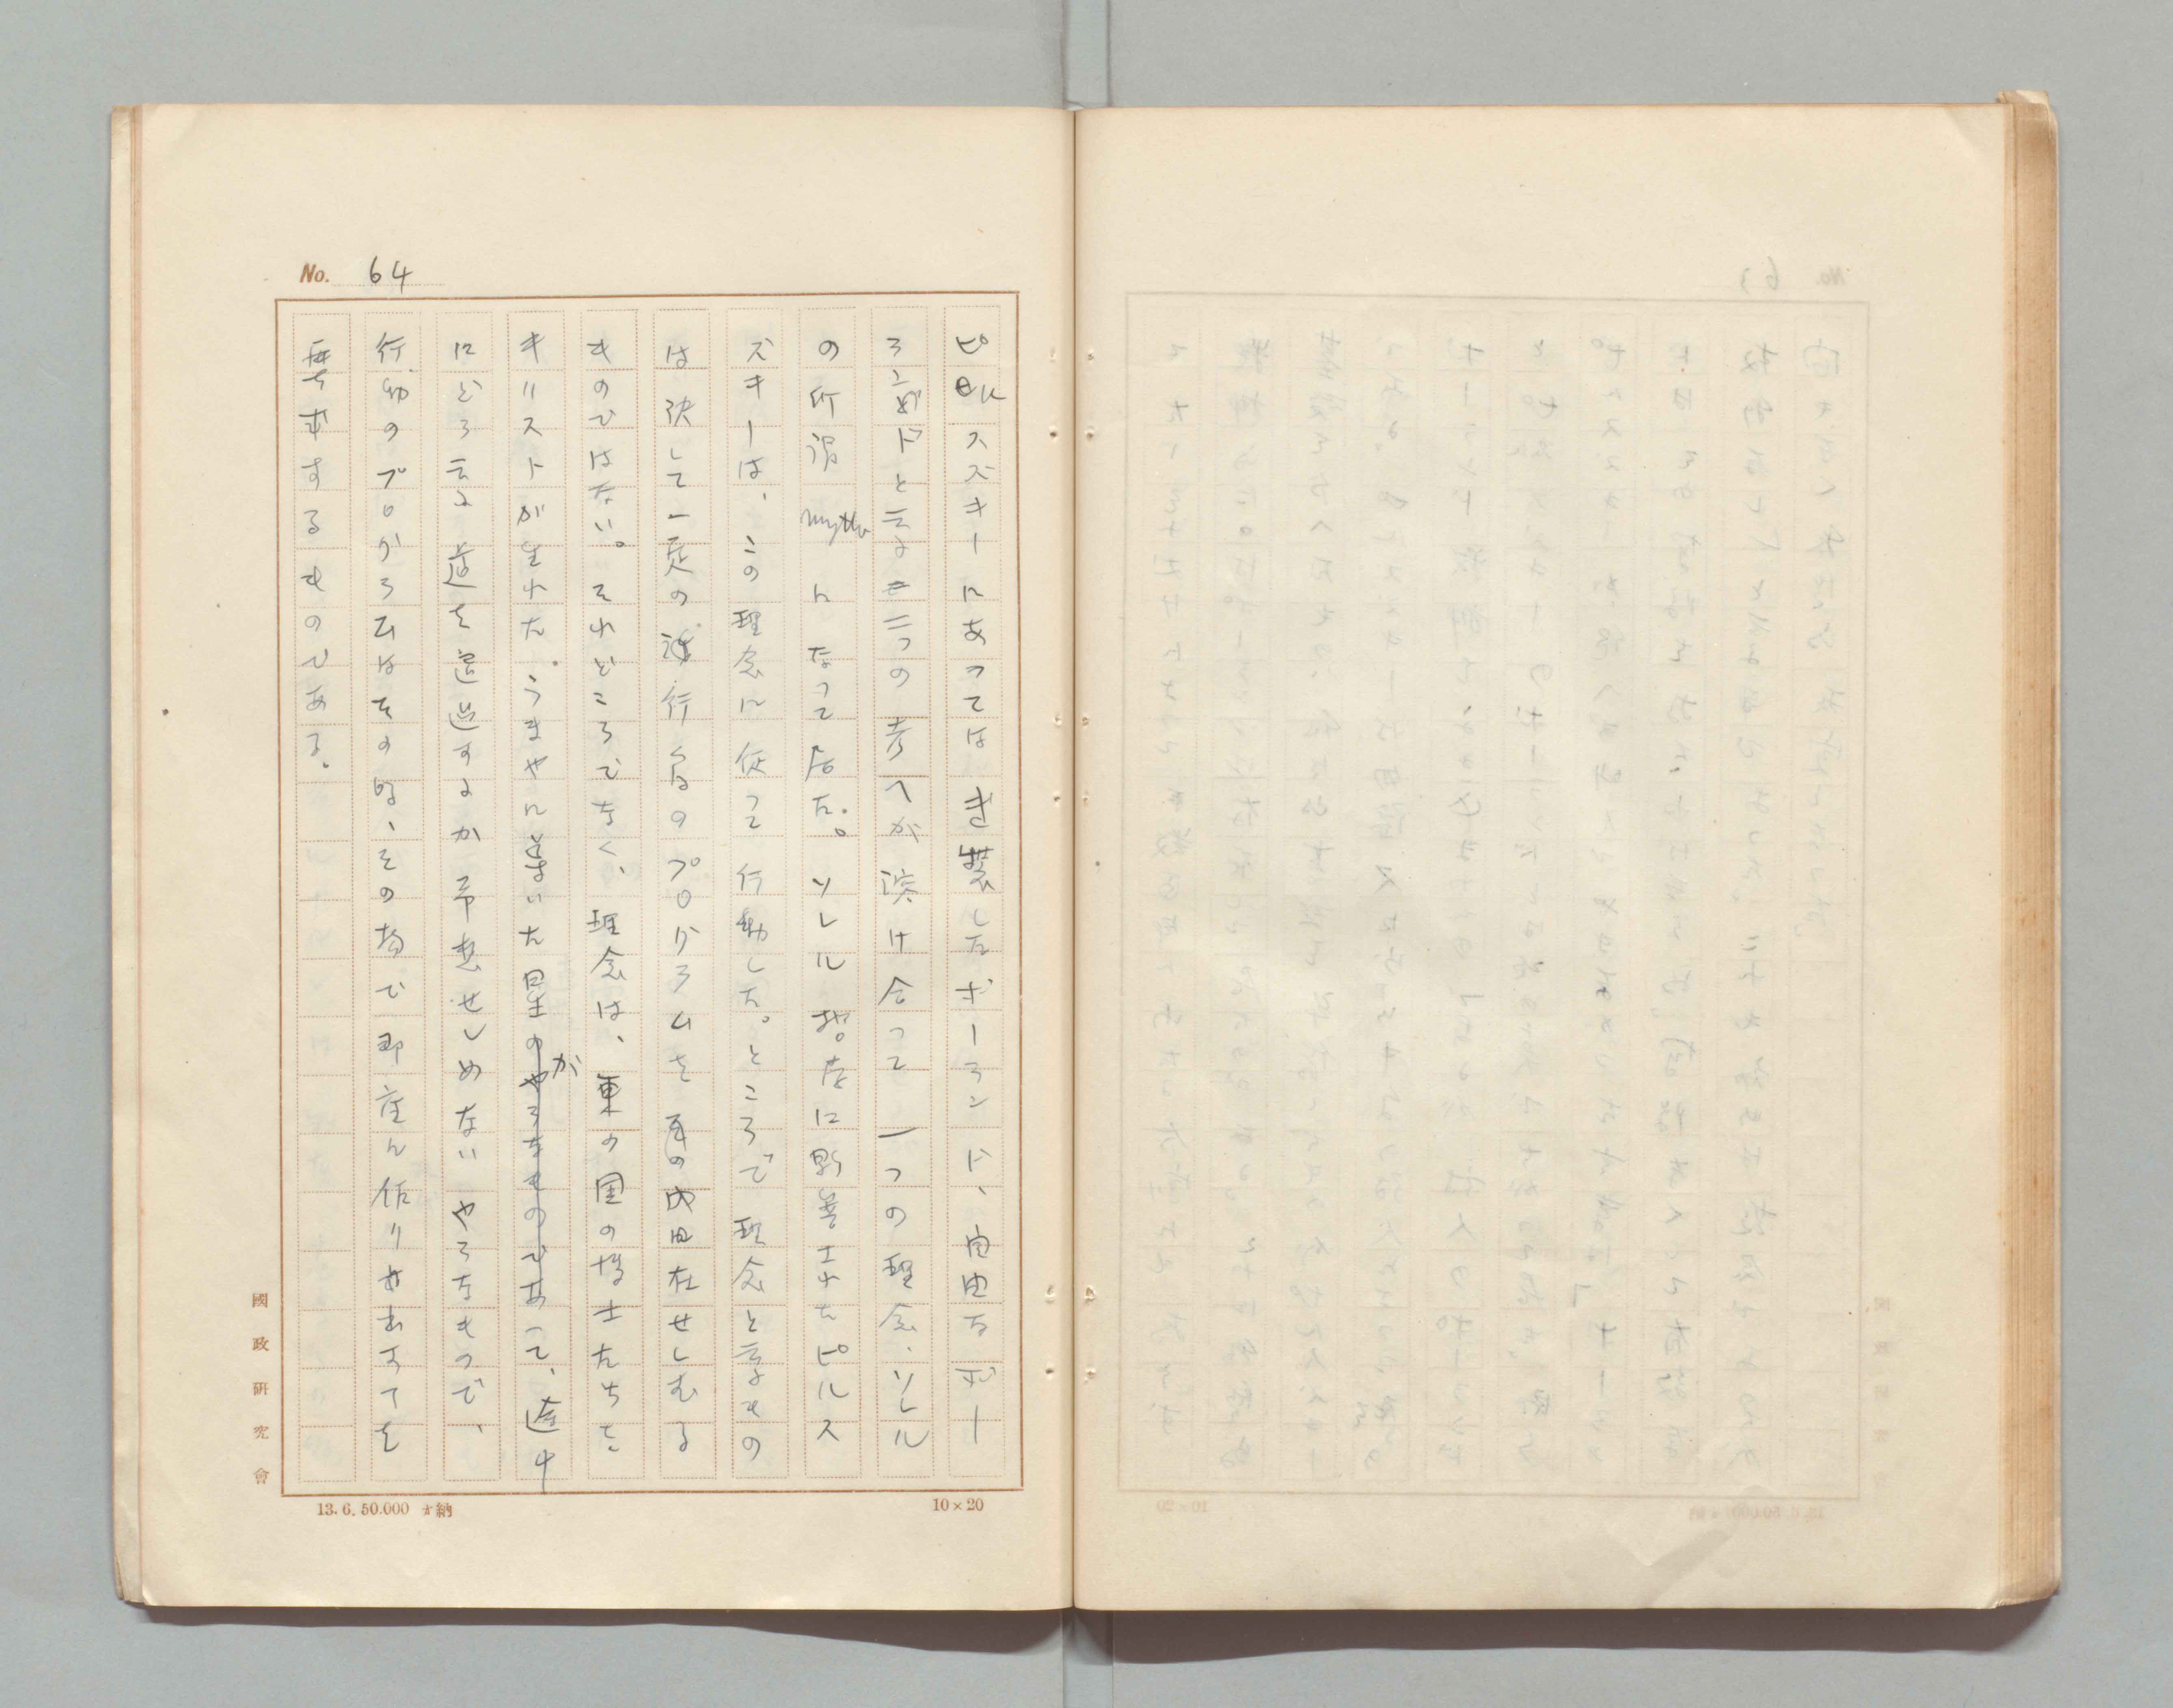 No. 64
ピルスズキーにあつてはき装したポーランド、自由なポー
ランドと云ふ二つの考へが溶け合つて一つの理念、ソレル
の所謂 mythe になつて居た。ソレル 批に影善さナたピルス
ズキーは、この理念に従つて行動した。ところで理念と云ふもの
は決して一定の 行為のプログラムを 其の内に内在せしむる
ものではない。それどころでなく、理念は、東の国の博士たちを
キリストが生れた。うまやに導いた星がであつて、途中
にどう云ふ道を通過するか予想せしめないやうなもので、
行動のプログラムはその時、その場で即座に作り出すことを
要求するものである。
國政研究會
13. 6. 50.000 納
10×20